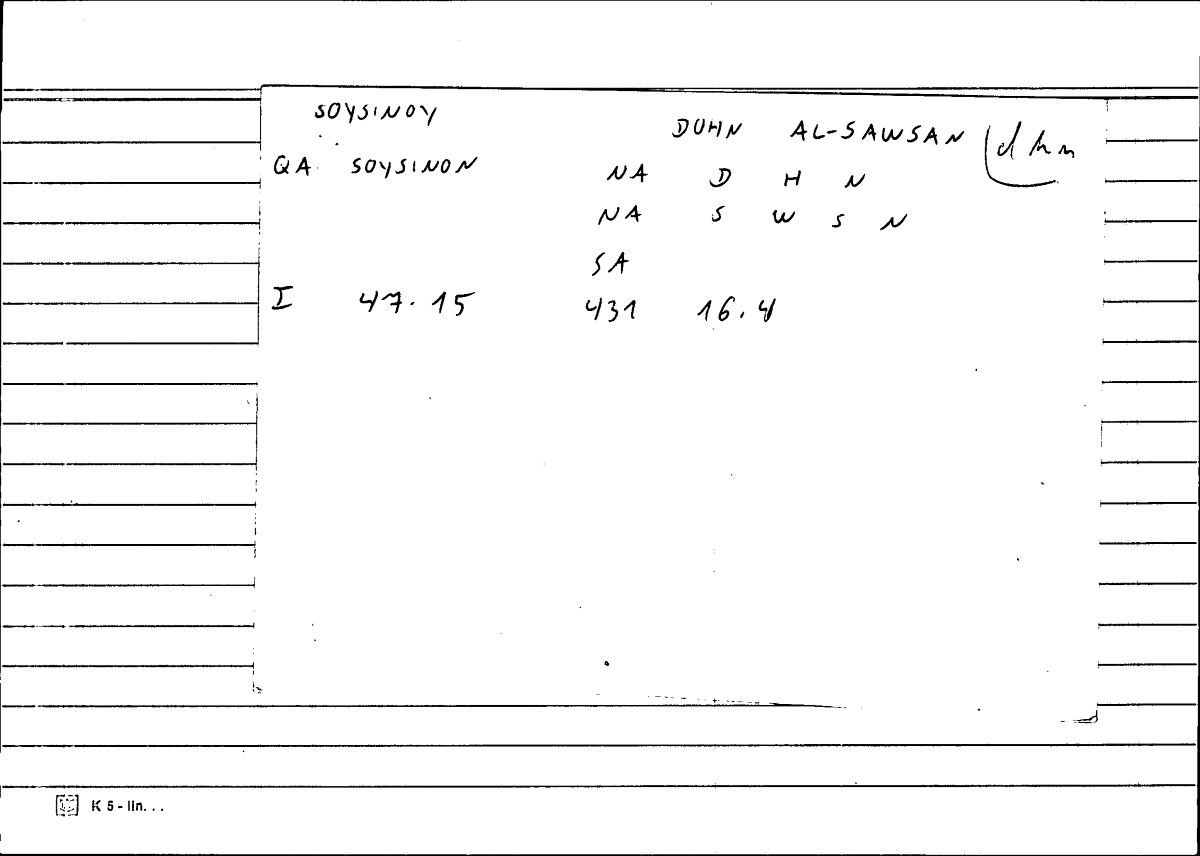 SOYSINOY DUHN AL-SAWSAN dhn
QA SOYSINON NA D H N
NA S W S N
SA
I 47.15 431 16.4
K 5 - lin. . .